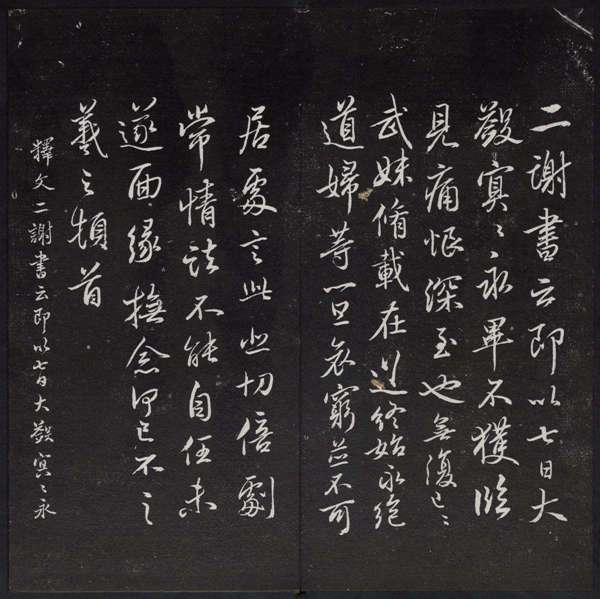 二謝書云即以七日大
斂冥〻永畢不獲臨
見痛恨深至也無復已〻
武妹脩載在道終始永絕
道婦等一旦哀窮並不可
居處言此悲切倍劇
常情諸不能自任未
遂面緣撫念何已不
羲之頓首
釋文二謝書云即以七日大斂冥〻永